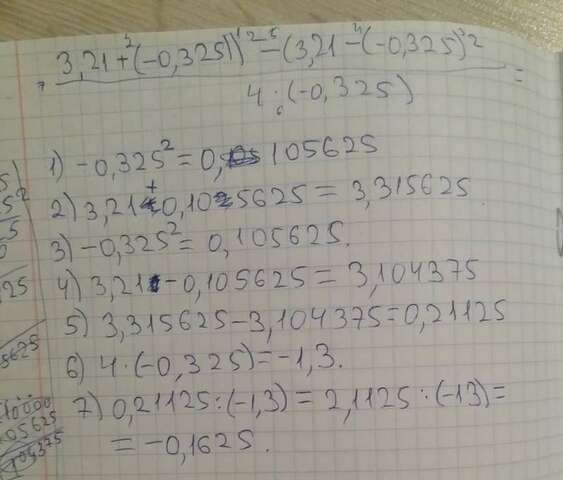 3,21+(-0,325))² - (3,21-(-0,325)²
4 · (-0,325)
=
1) -0,325² = 0,105625
2) 3,21+0,105625 = 3,315625
3) -0,325² = 0,105625.
4) 3,21-0,105625 = 3,104375
5) 3,315625-3,104375=0,21125
6) 4·(-0,325)=-1,3.
7) 0,21125:(-1,3) = 2,1125:(-13)=
= -0,1625.